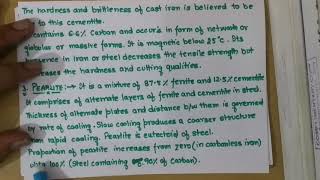 The hardness and brittleness of cast iron is believed to be
to this cementite.
contains 6.6% Carbon and occurs in form of network or
globulus or massive forms. It is magnetic below 25°c. Its
in iron or steel decreases the tensile strength but
the hardness and cutting qualities.
PEARLITE :- It is a mixture of 87.5% ferrite and 12.5% cementite
It comprises of alternate layers of ferrite and cementite in steel.
Thickness of alternate plates and distance b/w them is governed
by rate of cooling. Slow cooling produces a coarser structure
than rapid cooling. Pearlite is eutectoid of steel.
Proportion of pearlite increases from zero (in carbonless iron)
upto 100% (Steel containing .90% of carbon).